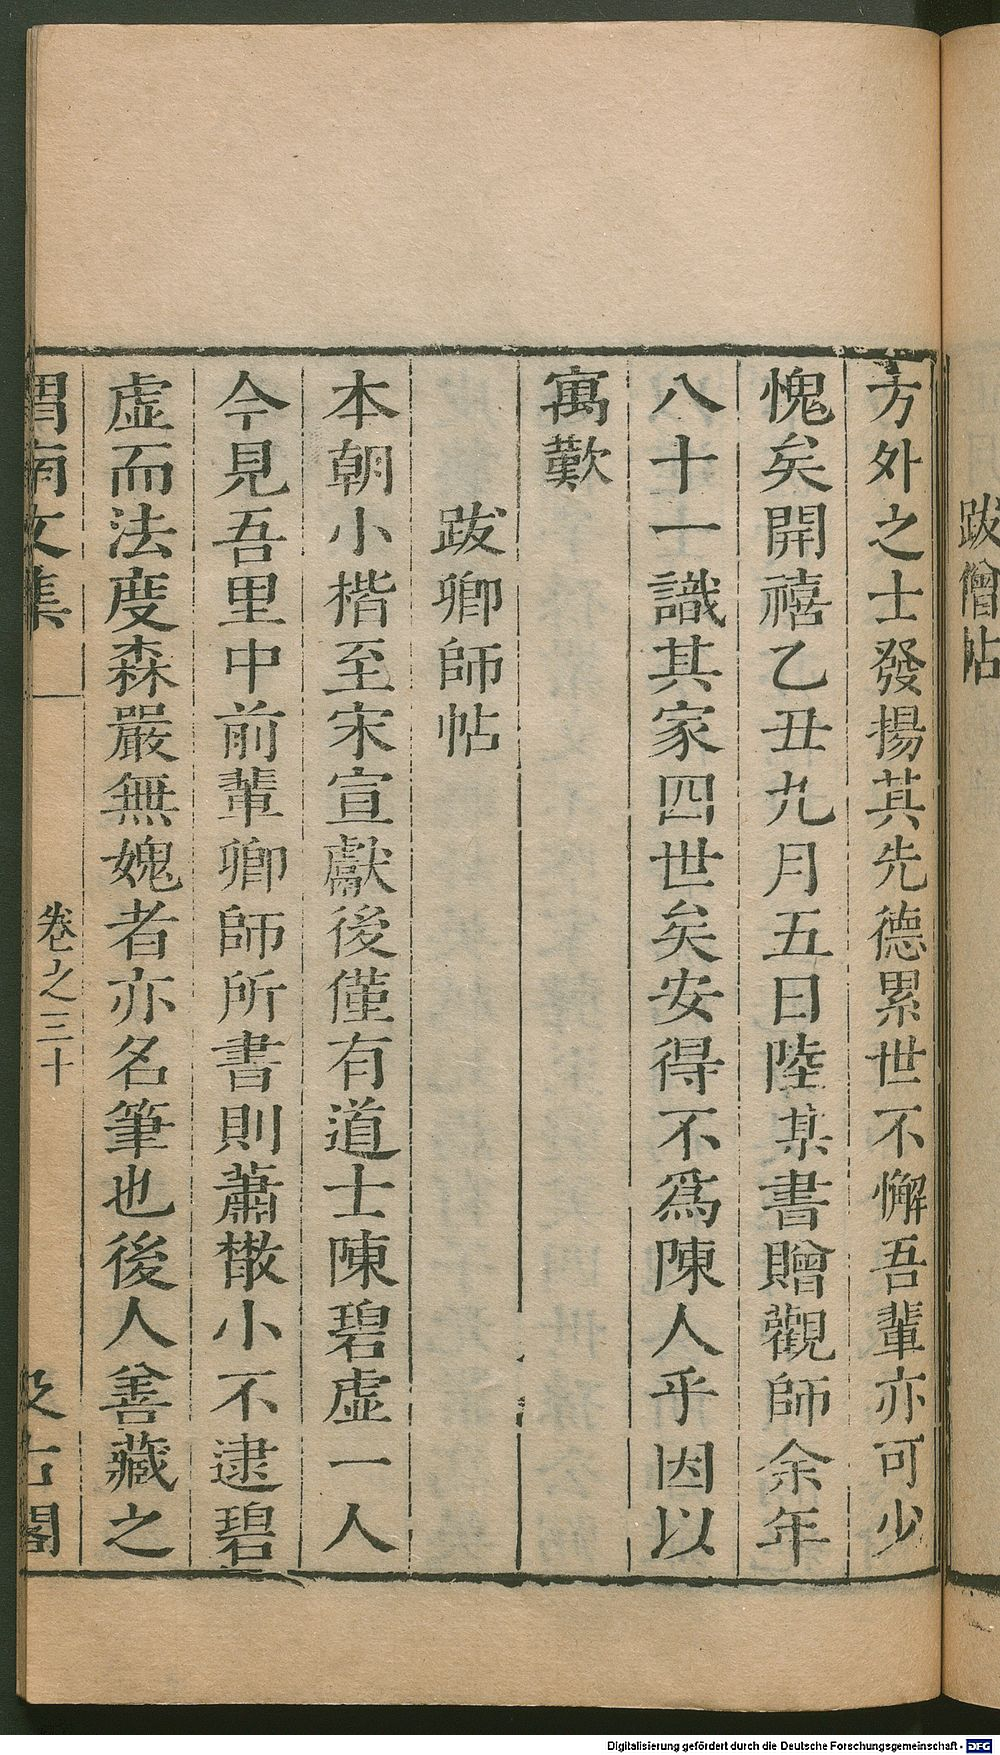 跋僧帖
方外之士發揚其先德累世不懈吾輩亦可少
愧矣開禧乙丑九月五日陸某書贈觀師余年
八十一識其家四世矣安得不爲陳人乎因以
寓歎
跋卿師帖
本朝小楷至宋宣獻後僅有道士陳碧虛一人
今見吾里中前輩卿師所書則蕭散小不逮碧
虛而法度森嚴無媿者亦名筆也後人善藏之
渭南文集 卷之三十 汲古閣
Digitalisierung gefördert durch die Deutsche Forschungsgemeinschaft - DFG